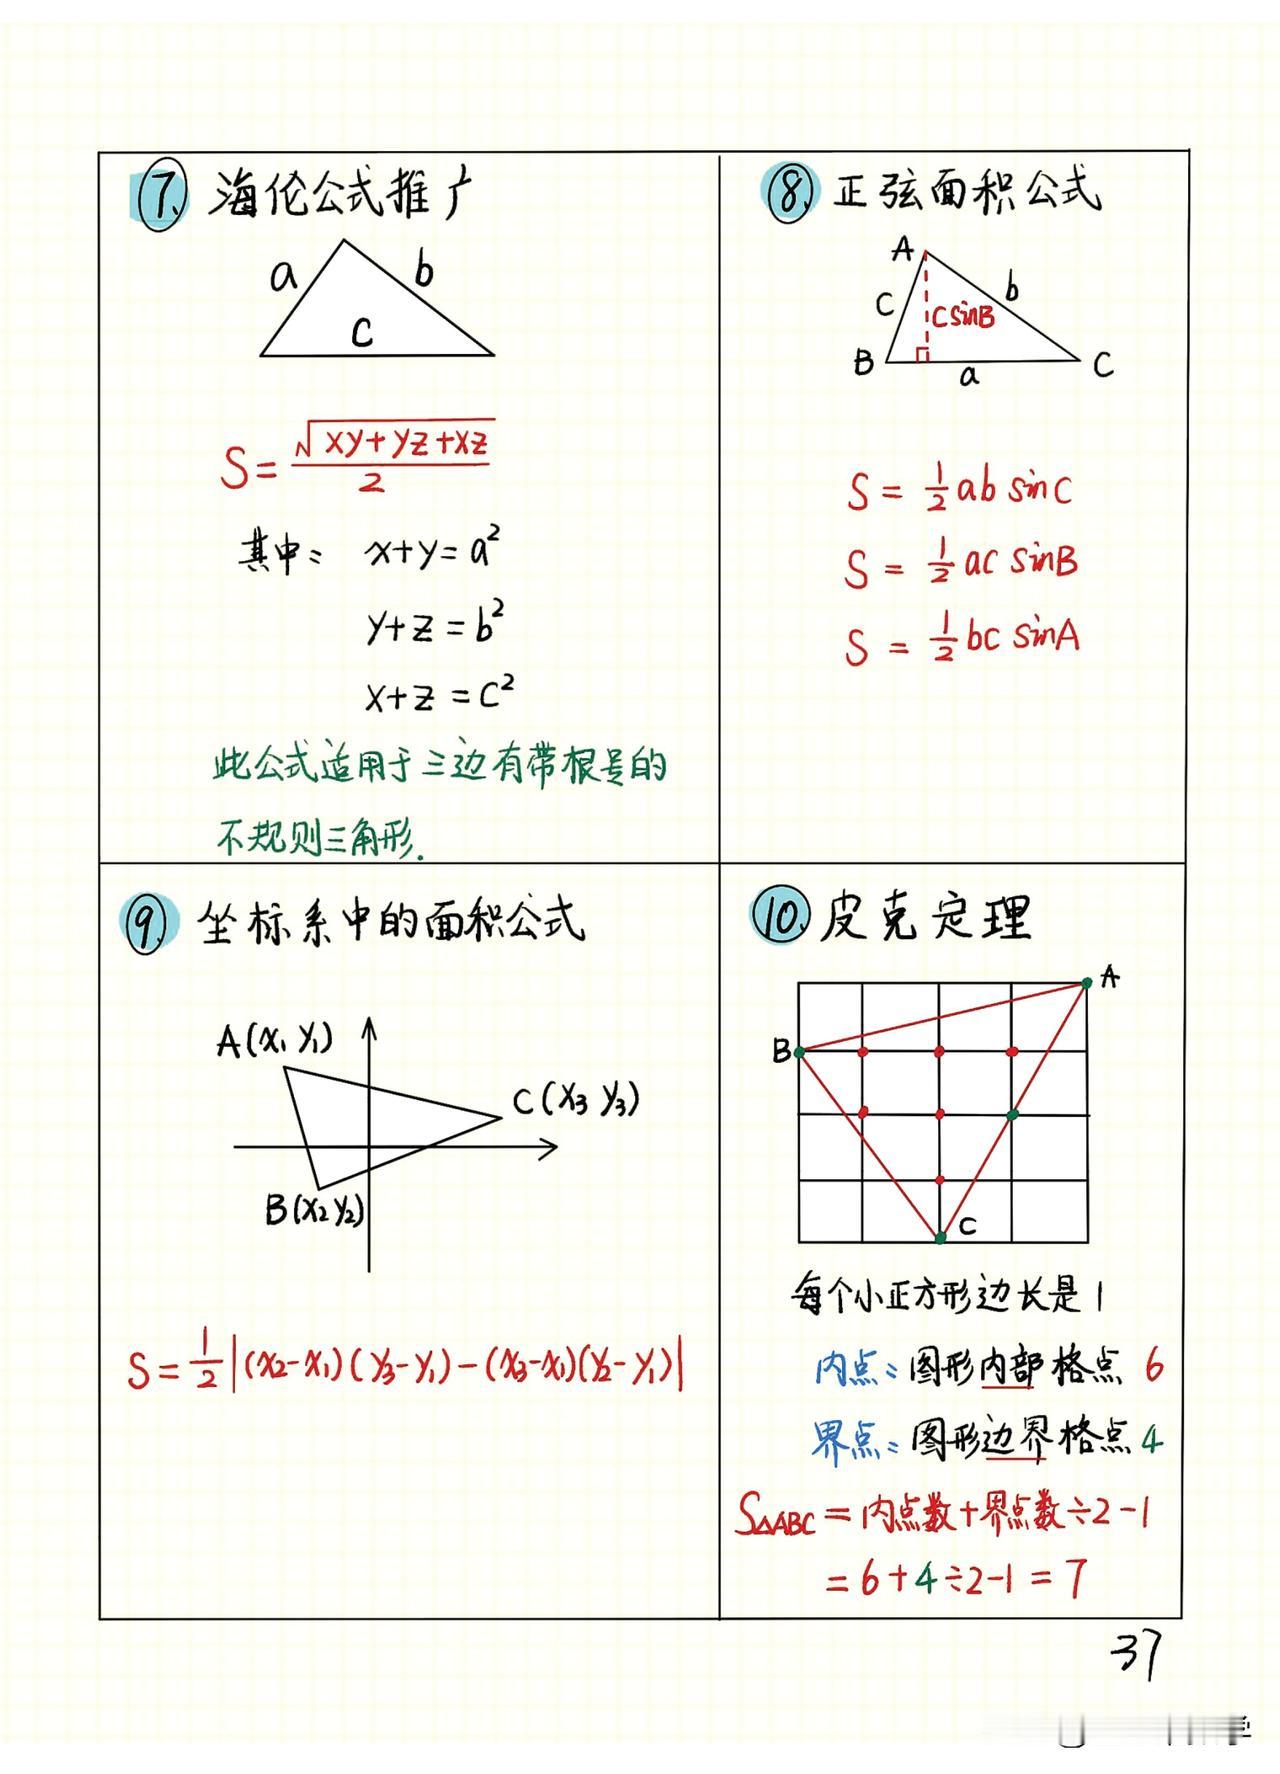 ⑦、海伦公式推广
a
b
c
S=√(xy+yz+xz)/2
其中: x+y=a²
y+z=b²
x+z=c²
此公式适用于三边有带根号的
不规则三角形.
⑧、正弦面积公式
A
c
b
csinB
B
a
C
S=1/2 ab sinC
S=1/2 ac sinB
S=1/2 bc sinA
⑨、坐标系中的面积公式
A(x₁ y₁)
C(x₃ y₃)
B(x₂ y₂)
S=1/2|(x₂-x₁)(y₃-y₁)-(x₃-x₁)(y₂-y₁)|
⑩、皮克定理
A
B
C
每个小正方形边长是1
内点: 图形内部格点 6
界点: 图形边界格点 4
S△ABC=内点数+界点数÷2-1
=6+4÷2-1=7
37